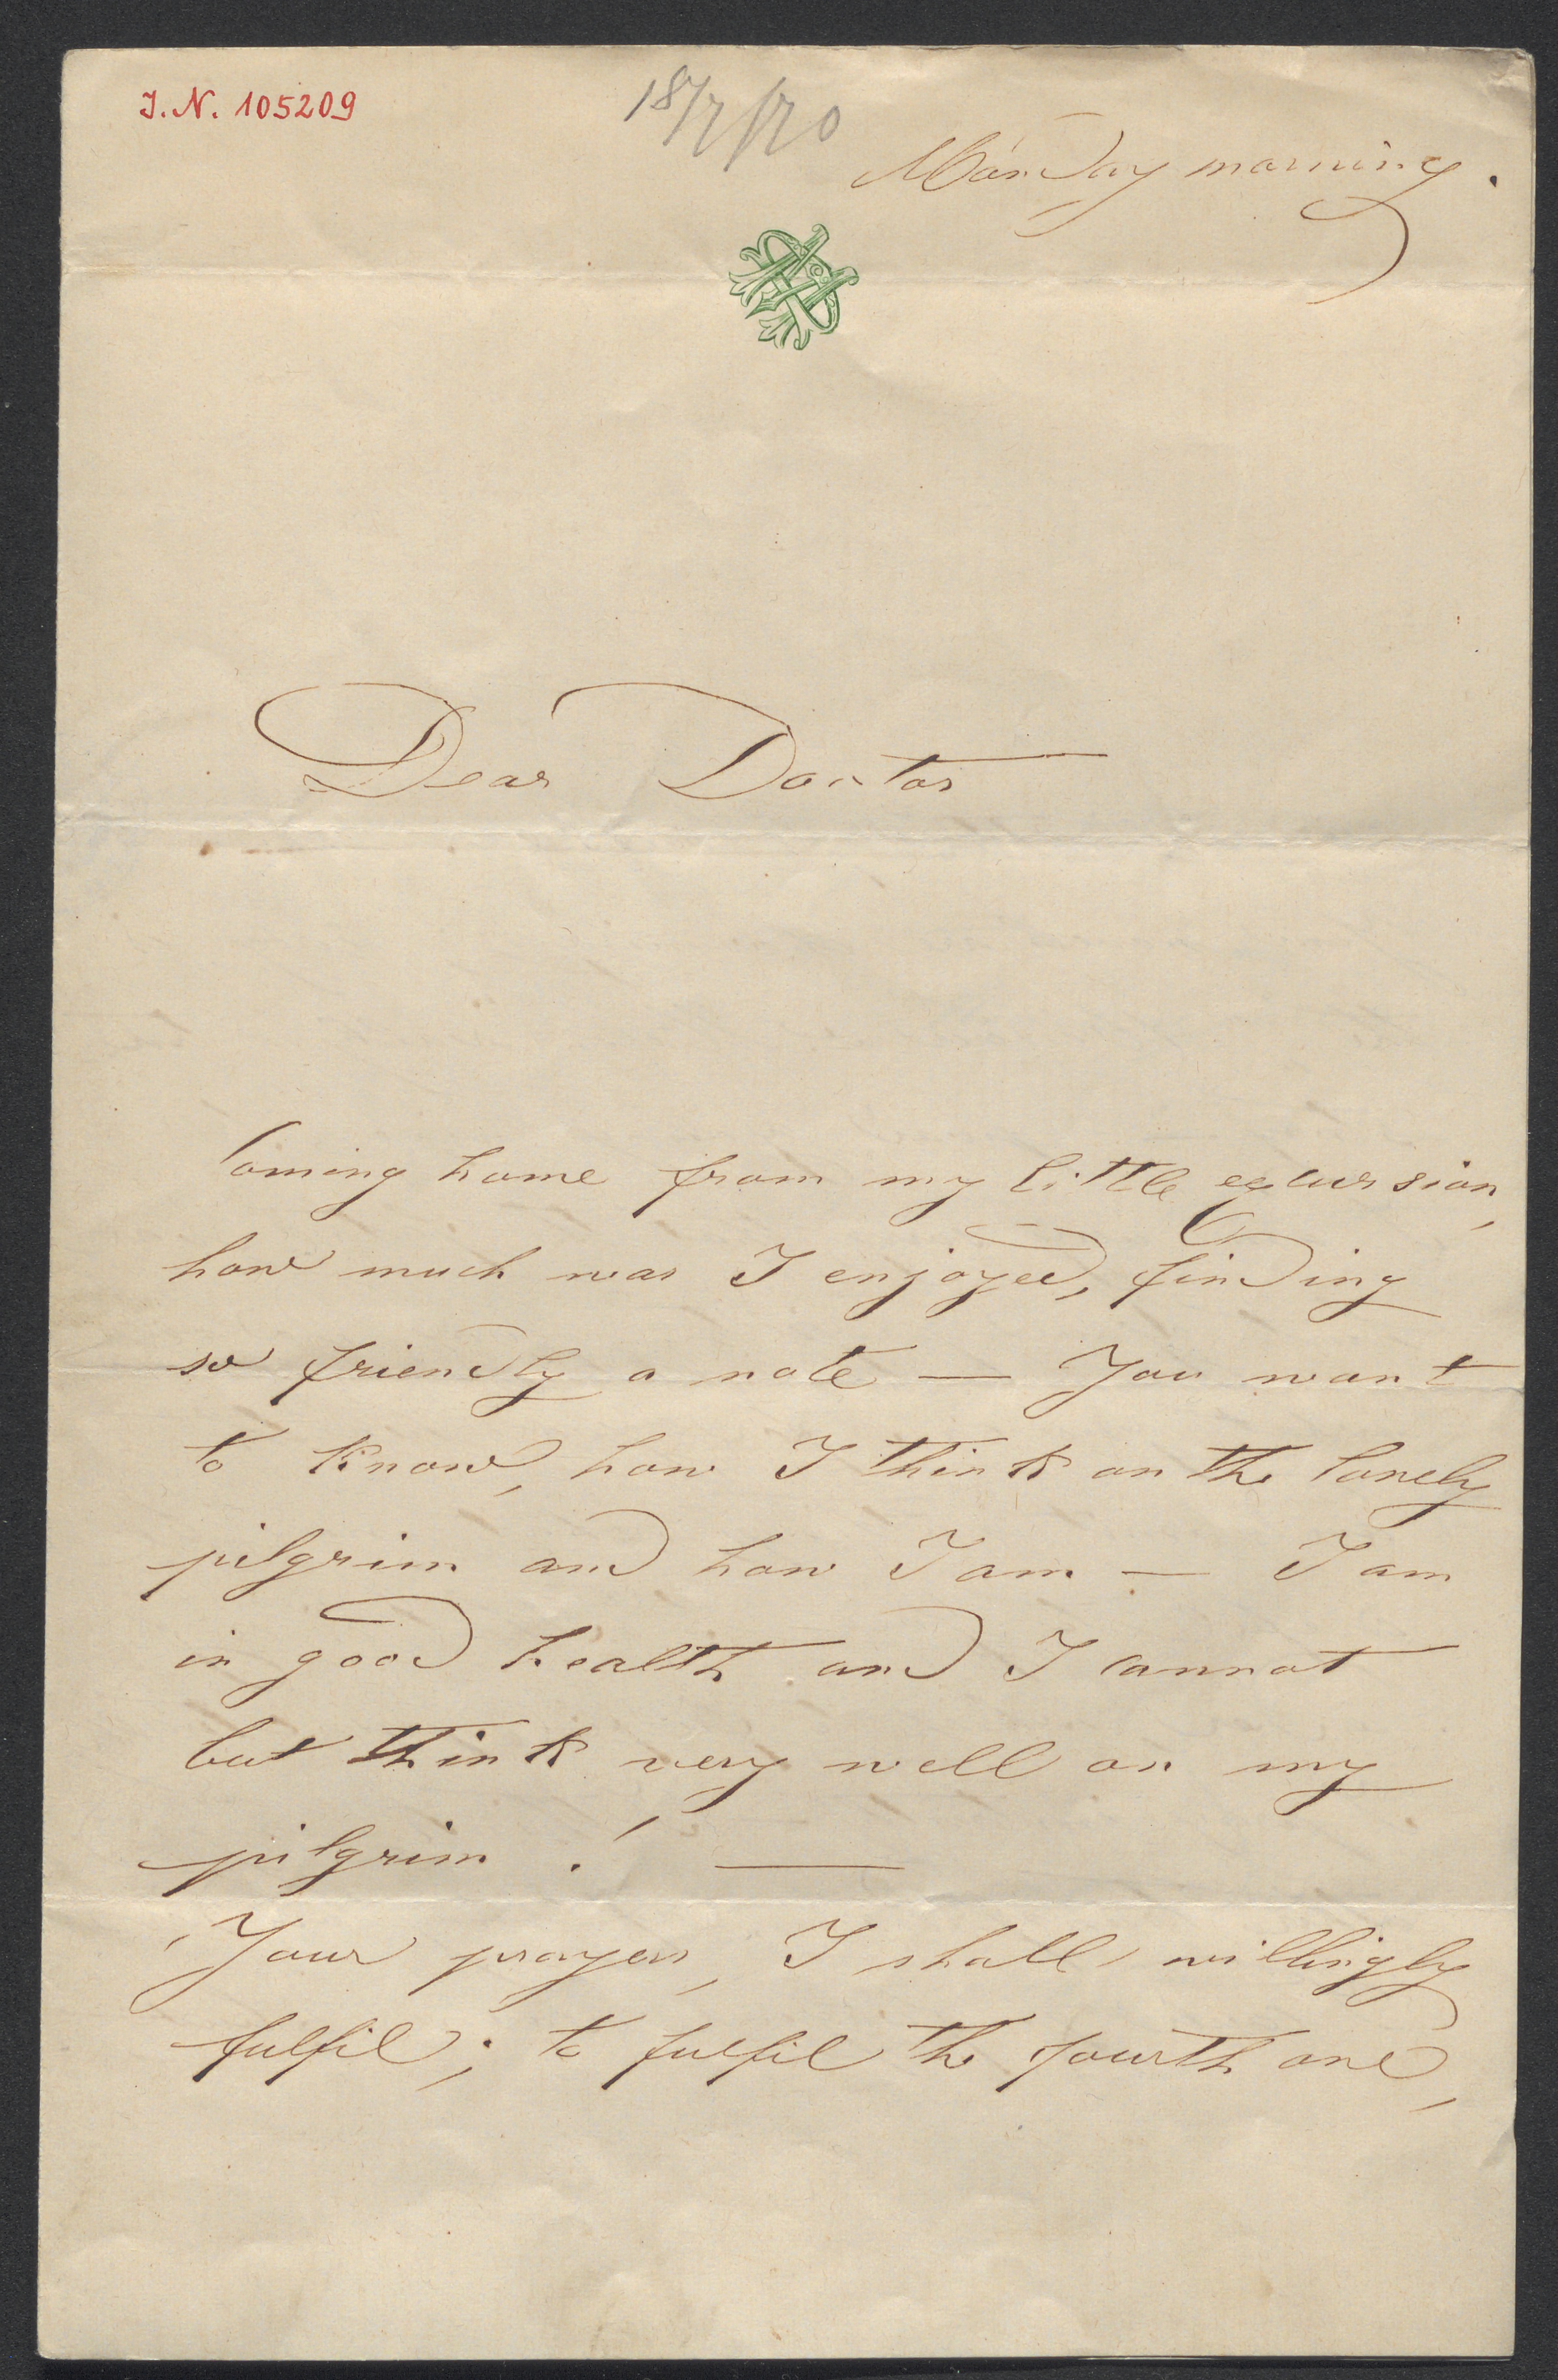 I.N. 105209
18/7/70
Monday morning.
Dear Doctor
Coming home from my little excursion,
how much was I enjoyed, finding
so friendly a note — You want
to know, how I think on the lonely
pilgrim and how I am — I am
in good health and I cannot
but think very well on my
pilgrim! —
Your prayers, I shall willingly
fulfil; to fulfil the fourth one,